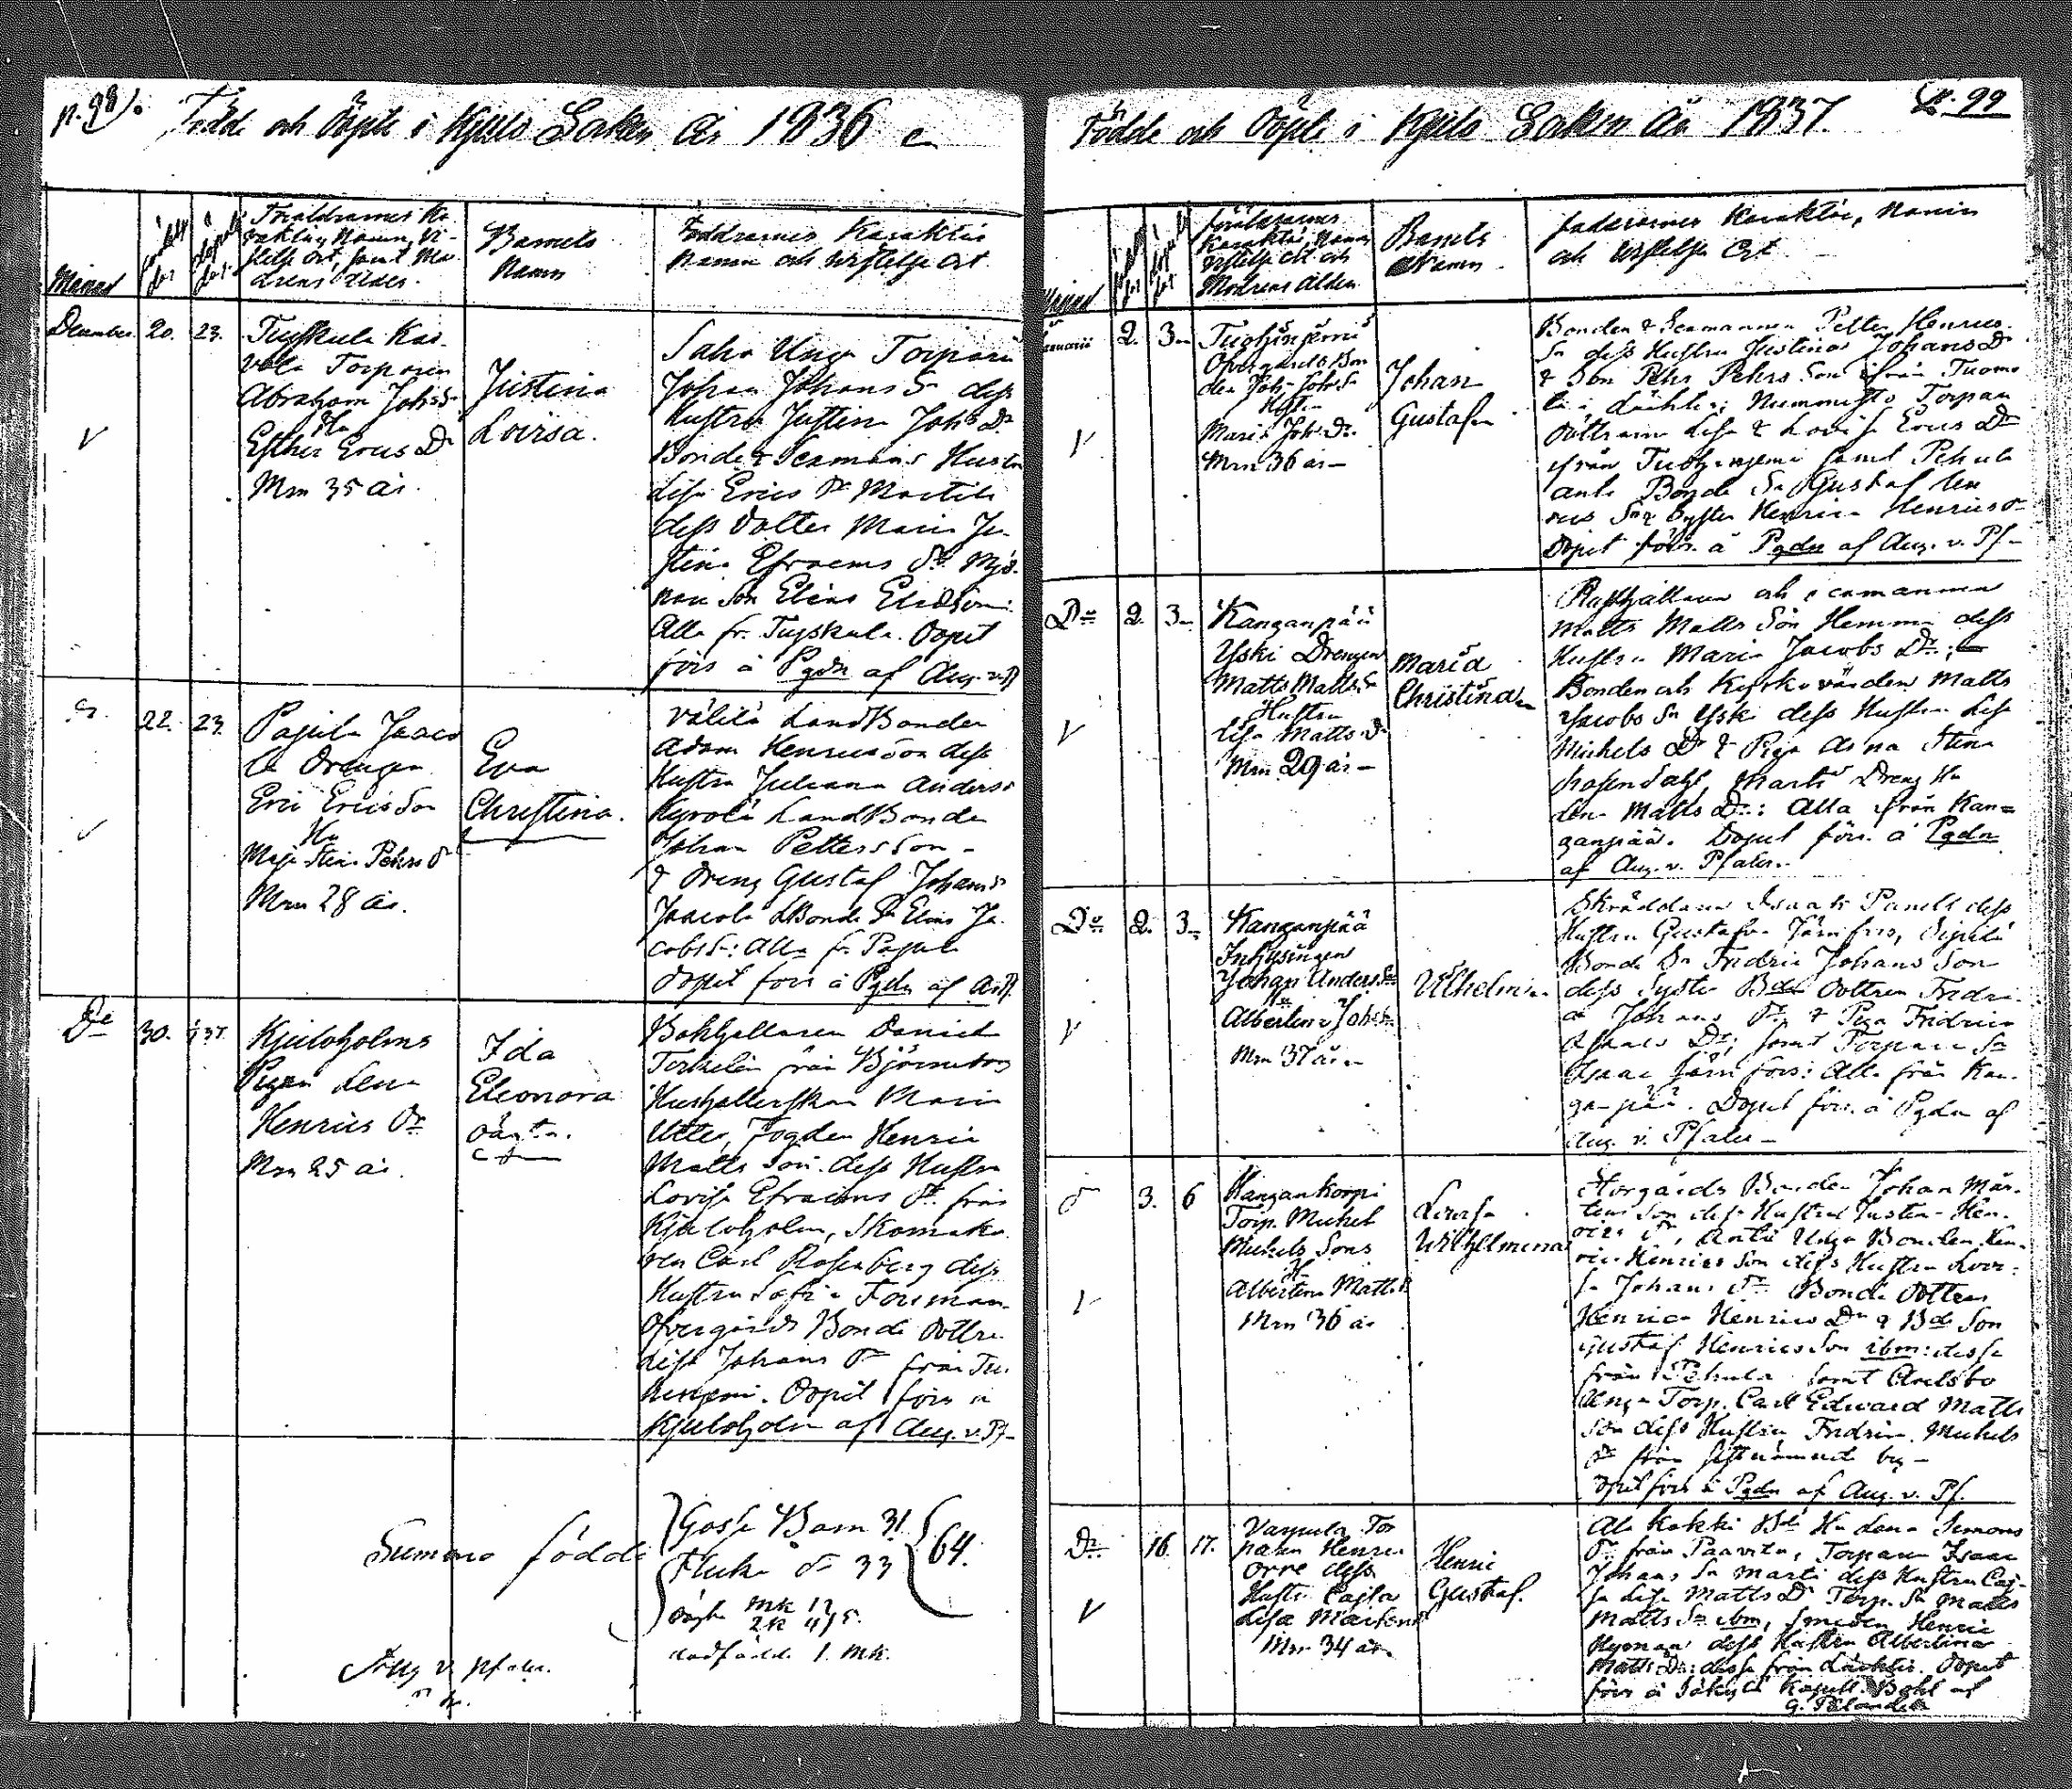 p. 98/.
Födde och Döpte i Kjulo Sokn År 1836
Månad
födelse
dat
döpelse
dat
Föräldrarnes Ka-
raktär, Namn, Vi-
stelse Ort, samt Mo-
drens Ålder.
Barnets
Namn
Faddrarnes Karaktär
Namn och Vistelse Ort
December 20. 23.
Tuiskula Kar-
vola Torparen
Abraham Johs Sn
Hu
Esther Erics Dr
Mrn 35 år.
Justina
Lovisa.
Saha Unga Torparen
Johan Johans Sn dess
Hustru Justina Johs Dr
Bonde & Sexmans Hustru
Lisa Erics Dr Martila
dess Dotter Maria Ju-
stina Efraems Dr Mjö-
nare Son Elias Eliæson:
Alla fr. Tuiskula. Döpit
förs å Pgdn af Aug. v. P
22. 23.
Pajula Jaaco
la Drengen
Eric Ericsson
Hu
Maja Stina Pehrs Dr
Mrn 28 år.
Eva
Christina.
Välilä Land Bonden
Adam Henricsson dess
Hustru Juliana Anders
Kyrölä Land Bonde
Johan Pettersson
& Dreng Gustaf Johans
Jaacola LBonde Sn Elias Ja-
cobs Sn: Alla fr Pajula
Döpit förs å Pgdn af A v P.
Do 30.
Kjuloholms
Pigan Lena
Henrics Dr
Mrn 25 år.
Ida
Eleonora
oäkta.
Bokhållaren Daniel
Terkelin från Björneborg
Hushållerskan Maria
Utter, Fogden Henric
Matts Son dess Hustru
Lovisa Efraims Dr från
Kjuloholm, Skomaka
ren Carl Rosenberg dess
Hustru Sofia Forsman
Öfvergårds Bonde Dottren
Lisa Johans Dr från Tu-
henjemi. Döpit förs å
Kjuloholm af Aug. v. Pf
Summa födde
Gosse Barn 31
Flicke Do 33
64.
oägta mk 12
dödfödde 1. mk.
Aug v Pfaler.
Födde och Döpte i Kjulo Sokn År 1837.
p. 99
Månad
Föräldrarnes
Karaktär, Namn
Vistelse Ort och
Modrens Ålder
Barnets
Namn
Faddrarnes Karaktär, Namn
och Vistelse Ort
Januarii 2. 3
Tuohinjemi
Öfvergårds Bon
den Joh. Johs Sn
Hustru
Maria Joh. Dr.
Mrn 36 år
Johan
Gustaf
Bonden & Sexmannen Petter Henrics
Sn dess Hustru Justina Johans Dr
& Son Pehr Pehrs Son ifrån Tuomo
la i Lächteis Nummisto Torpare
Döttrarna Lisa & Lovisa Erics Dr
ifrån Tuohinjemi samt Pehula
Antti Bonde Sn Gustaf Hen
rics Sn & Syster Henrica Henrics Dr
Döpit förs. å Pgdn af Aug. v. Pf
Do 2. 3
Kanganpää
Yski Drengen
Matts Matts Sn
Hustru
Lisa Matts Dr
Mrn 29 år
Maria
Christina
Rusthållaren och sexmannen
Matts Matts Son Hemma dess
Hustru Maria Jacobs Dr;
Bonden och Kyrkovärden Matts
Jacobs Sn Yski dess Hustru Lisa
Michels Dr & Piga Anna Stina
Rosendahl, Martti Dreng Hu
Lena Matts Dr: Alla ifrån Kan=
ganpää. Döpit förs. å Pgdn
af Aug. v. Pfaler.
Do 2. 3
Kanganpää
Inhysingen
Johan Anders Sn
Hu
Albertina Johs Dr
Mrn 37 år
Wilhelmina
Skräddaren Isaak Panelli dess
Hustru Gustafva Järnfors, Sipilä
Bonde Sn Fridric Johans Son
dess Syster Bde Dottren Fridri-
ca Johans Dr & Piga Fridrica
Isaacs Dr; samt Torpare Sn
Isaac Järnfors: Alla från Kan-
ganpää. Döpit förs. å Pgdn af
Aug. v. Pfaler
Do 3. 6
Kangankorpi
Torp. Michel
Michels Sons
Hu
Albertina Matts Dr
Mrn 36 år
Lovisa
Wilhelmina
Storgårds Bonden Johan Mår-
tens Son dess Hustru Justina Hen-
rics Dr, Antti Unga Bonden Hen-
ric Henrics Son dess Hustru Lovi-
sa Johans Dr Bonde Dottren
Henrica Henrics Dr & Bde Son
Gustaf Henrics Son ibm: dessa
från Pehula samt Arelsbo
Unga Torp. Carl Edward Matts
Son dess Hustru Fridrica Michels
Dr från sistnämnde by
Döpit förs å Pgdn af Aug. v. Pf.
Do 16. 17.
Vampula Tor
paren Henric
Orre dess
Hustru Cajsa
Lisa Mårtens Dr
Mrn 34 år
Henric
Gustaf.
Ala Kokki Bde Hu Lena Simons
Dr från Paavola, Torparen Isaac
Johans Sn Martti dess Hustru Caj-
sa Lisa Matts Dr Torp. Sn Matts
Matts Sn ibm, Smeden Henric
Nyman dess Hustru Albertina
Matts Dr: dessa från Lächteis. Döpit
förs å Säkylä Kapell Bohl af
G. Polander